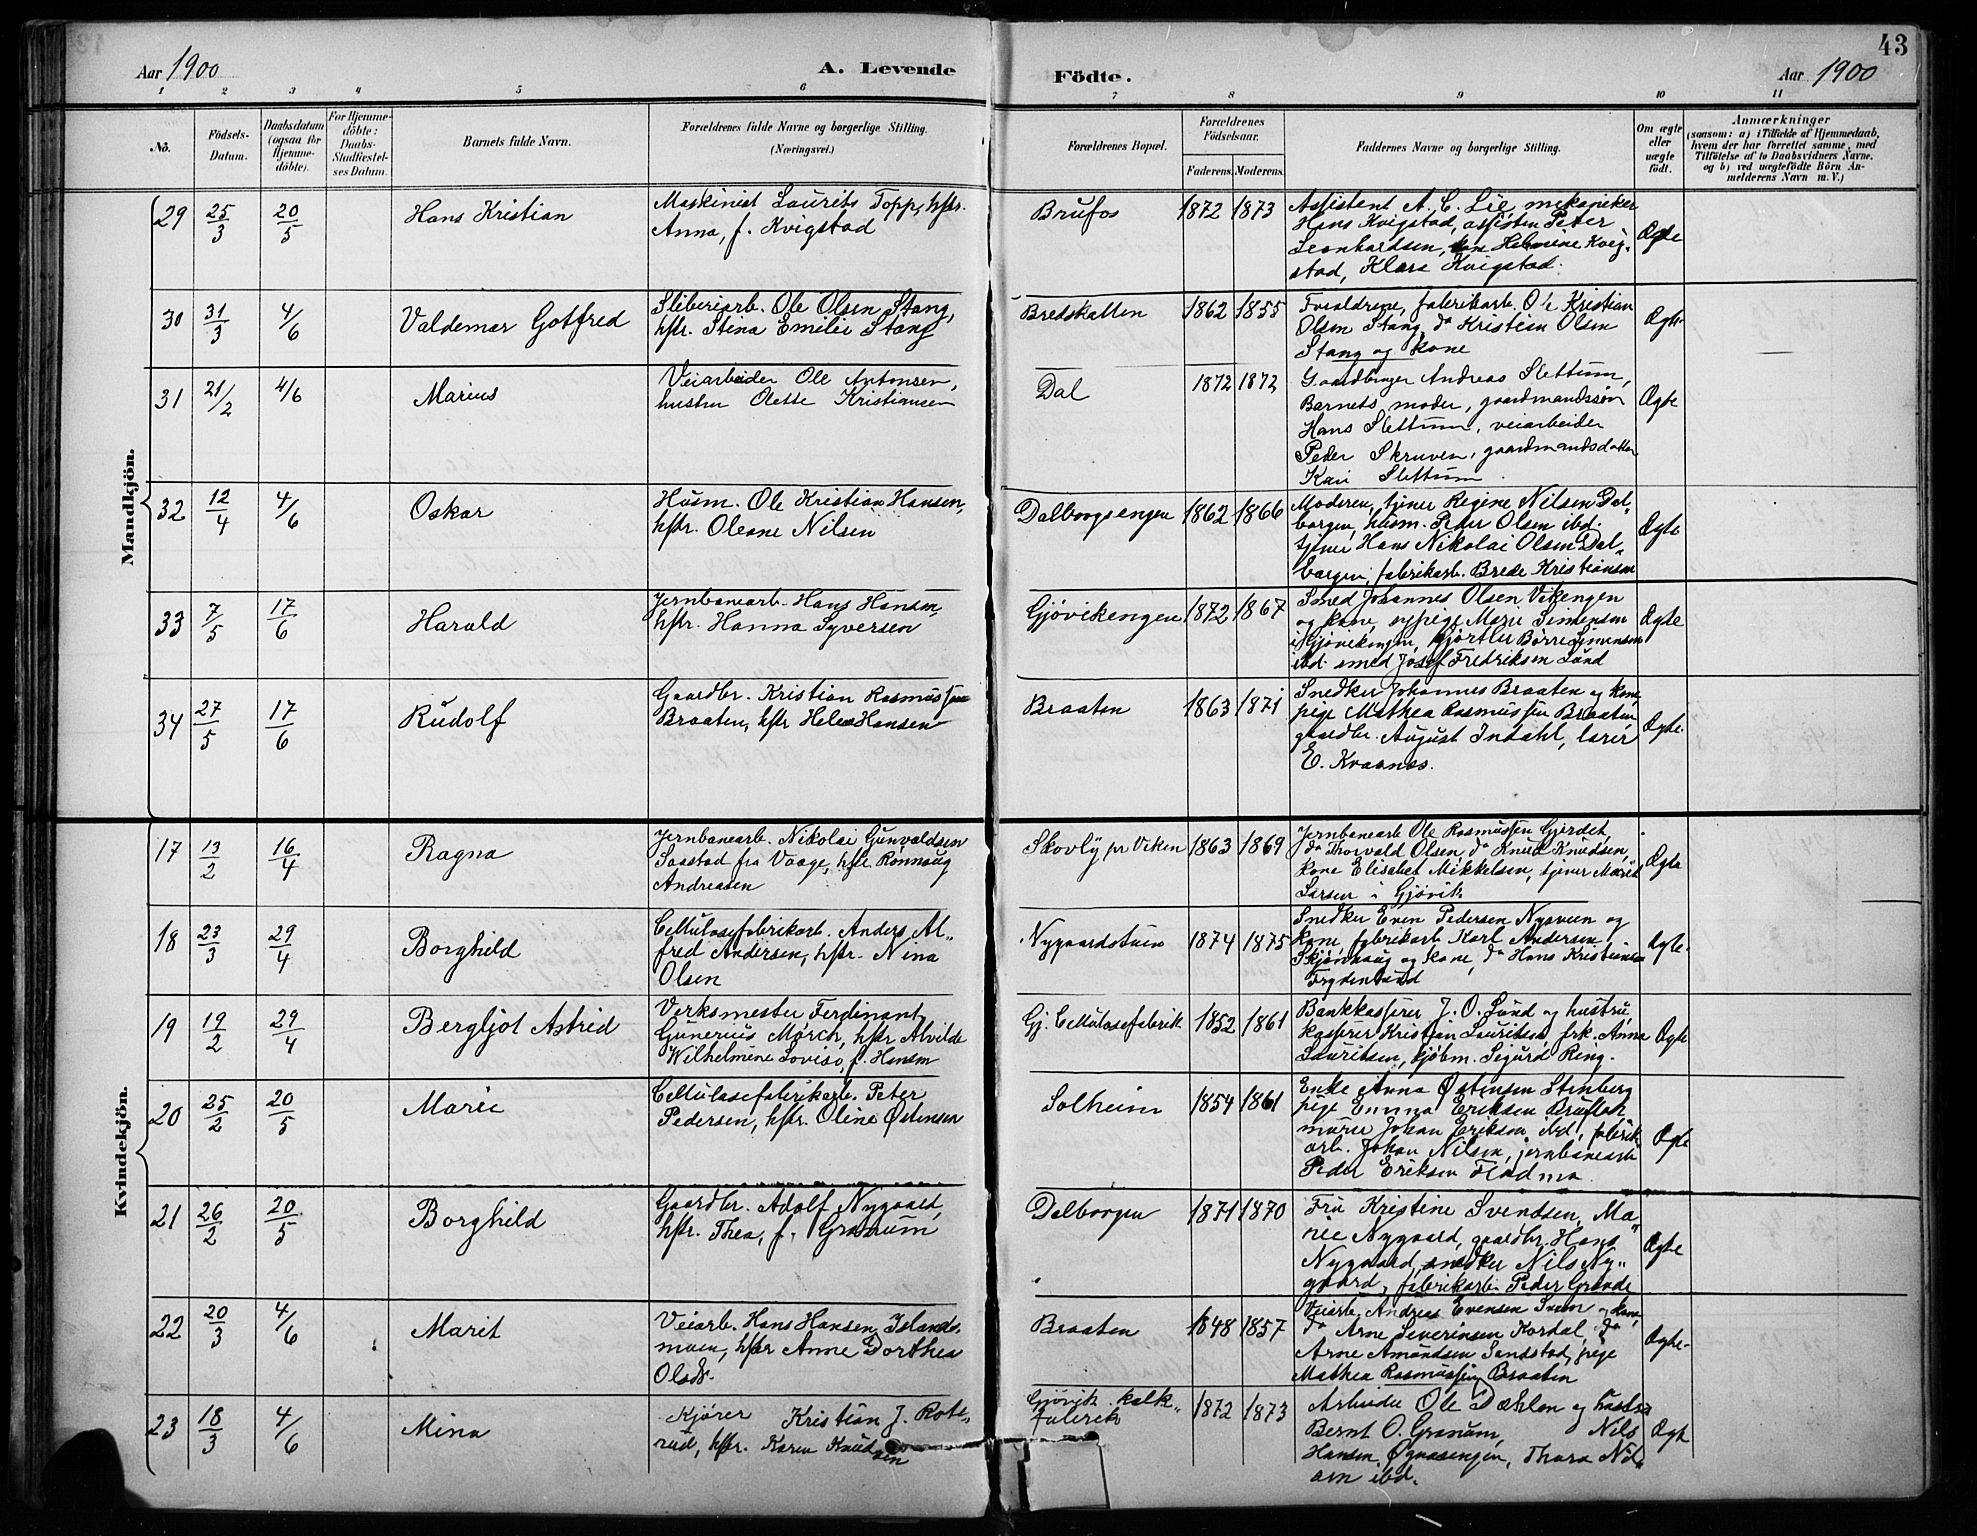 43
Aar 1900 A. Levende Födte. Aar 1900
1 2 3 4 5 6 7 8 9 10 11
No. Födsels-Datum. Daabsdatum (ogsaa for Hjemmedöbte). For Hjemmedöbte: Daabs-Stadfæstelses Datum. Barnets fulde Navn. Forældrenes fulde Navne og borgerlige Stilling. (Næringsvei.) Forældrenes Bopæl. Forældrenes Födselsaar. Faderens. Moderens. Faddernes Navne og borgerlige Stilling. Om ægte eller uægte födt. Anmærkninger (saasom: a) i Tilfælde af Hjemmedaab, hvem der har forrettet samme, med Tilföielse af to Daabsvidners Navne, og b) ved uægtefödte Börn Anmelderens Navn m. V.)
Mandkjön.
29 25/3 20/5 Hans Kristian
Maskinist Laurits Topp, hstr.
Anna, f. Kvigstad
Brufos 1872 1873
Assistent A. C. Lie, mekaniker
Hans Kvigstad, assisten Peter
Leonhardsen, kone Helmine Kvig-
stad, Klara Kvigstad.
Ægte
30 31/3 4/6 Valdemar Gotfred
Sliberiarb. Ole Olsen Stang,
hstr. Stina Emilie Stang
Bredskallen 1862 1855
Forældrene, fabrikarb. Ole Kristian
Olsen Stang, do Kristian Olsen
Stang og kone
Ægte
31 21/2 4/6 Marius
Veiarbeider Ole Antonsen,
hustru Olette Kristiansen
Dal 1872 1872
Gaardbruger Andreas Slettum,
Barnets moder, gaardmandssøn
Hans Slettum, veiarbeider
Peder Skruven, gaardmandsdatter
Kari Slettum
Ægte
32 12/4 4/6 Oskar
Husm. Ole Kristian Hansen,
hstr. Oleane Nilsen
Dalborgsengen 1862 1866
Moderen, tjener Regine Nilsen Dal-
borgen, husm. Peder Olsen ibd.
tjener Hans Nikolai Olsen Dal-
borgen, fabrikarb. Brede Kristiansen
Ægte
33 7/5 17/6 Harald
Jernbanearb. Hans Hansen,
hstr. Hanna Syversen
Gjövikengen 1872 1867
Smed Johannes Olsen Vikengen
og kone, sypige Marie Simensen
i Gjøvikengen, gjørtler Børre Simensen
ibd. smed Josef Fredriksen Lund
Ægte
34 27/5 17/6 Rudolf
Gaardbr. Kristian Rasmussen
Braaten, hstr Helene Hansen
Braaten 1863 1871
Snedker Johannes Braaten og kone
pige Mathea Rasmussen Braaten
gaardbr. August Indahl, lærer
E. Kraanes.
Ægte.
Kvindekjön.
17 13/2 16/4 Ragna
Jernbanearb. Nikolai Gunvaldsen
Saastad fra Vaage, hstr. Rønnaug
Andreasen
Skovly pr Viken 1863 1869
Jernbanearb Ole Rasmussen Gjerdet,
do Thorvald Olsen, do Knud Knudsen,
kone Elisabet Mikkelsen, tjener Marie
Larsen i Gjøvik
Ægte
18 23/3 29/4 Borghild
Cellulosefabrikarb. Anders Al-
fred Andersen, hstr. Nina
Olsen
Nygaardstuen 1874 1875
Snedker Even Pedersen Nysveen og
kone, fabrikarb Karl Andersen
Skjønhaug og kone, do Hans Kristiansen
Frydenlund
Ægte.
19 19/2 29/4 Bergljot Astrid
Verksmester Ferdinant
Gunerius Mørch, hstr Alvilde
Wilhelmine Loviso, f. Hansen
Gj. Cellulosefabrik 1852 1861
Bankkasserer J. O. Lund og hustru,
kasserer Kristian Lauritsen, frk. Anna
Lauritsen, kjøbm. Sigurd Reng.
Ægte
20 25/2 20/5 Marie
Cellulosefabrikarb. Peter
Pedersen, hstr. Oline Østensen
Solheim 1854 1861
Enke Anna Østensen Stenberg
pige Emma Eriksen Bruflot,
murer Johan Eriksen ibd, fabrik-
arb. Johan Nilsen, jernbanearb
Peder Eriksen Fladmo
Ægte
21 26/2 20/5 Borghild
Gaardbr. Adolf Nygaard,
hstr. Thea, f. Granum
Dalborgen 1871 1870
Fru Kristine Svendsen, Ma-
rie Nygaard, gaardbr. Hans
Nygaard, snedker Nils Ny-
gaard, fabrikarb. Peder Grande
Ægte
22 20/3 4/6 Marit
Veiarb. Hans Hansen Islands-
moen, hstr Anne Dorthea
Olsdr.
Braaten 1848 1857
Veiarb. Andreas Evensen Sveen og kone,
do Arne Severinsen Kordal, do
Arne Amundsen Sandstad, pige
Mathea Rasmussen Braaten
Ægte.
23 18/3 4/6 Mina
Kjører Kristian J. Rote-
rud, hstr. Karen Knudsen
Gjøvik kalk-
fabrik 1872 1873
Arbeider Ole Dæhlen og hustru
Bernt O. Granum, Nils
Hansen, Thara Nil-
sen ibd.
Ægte